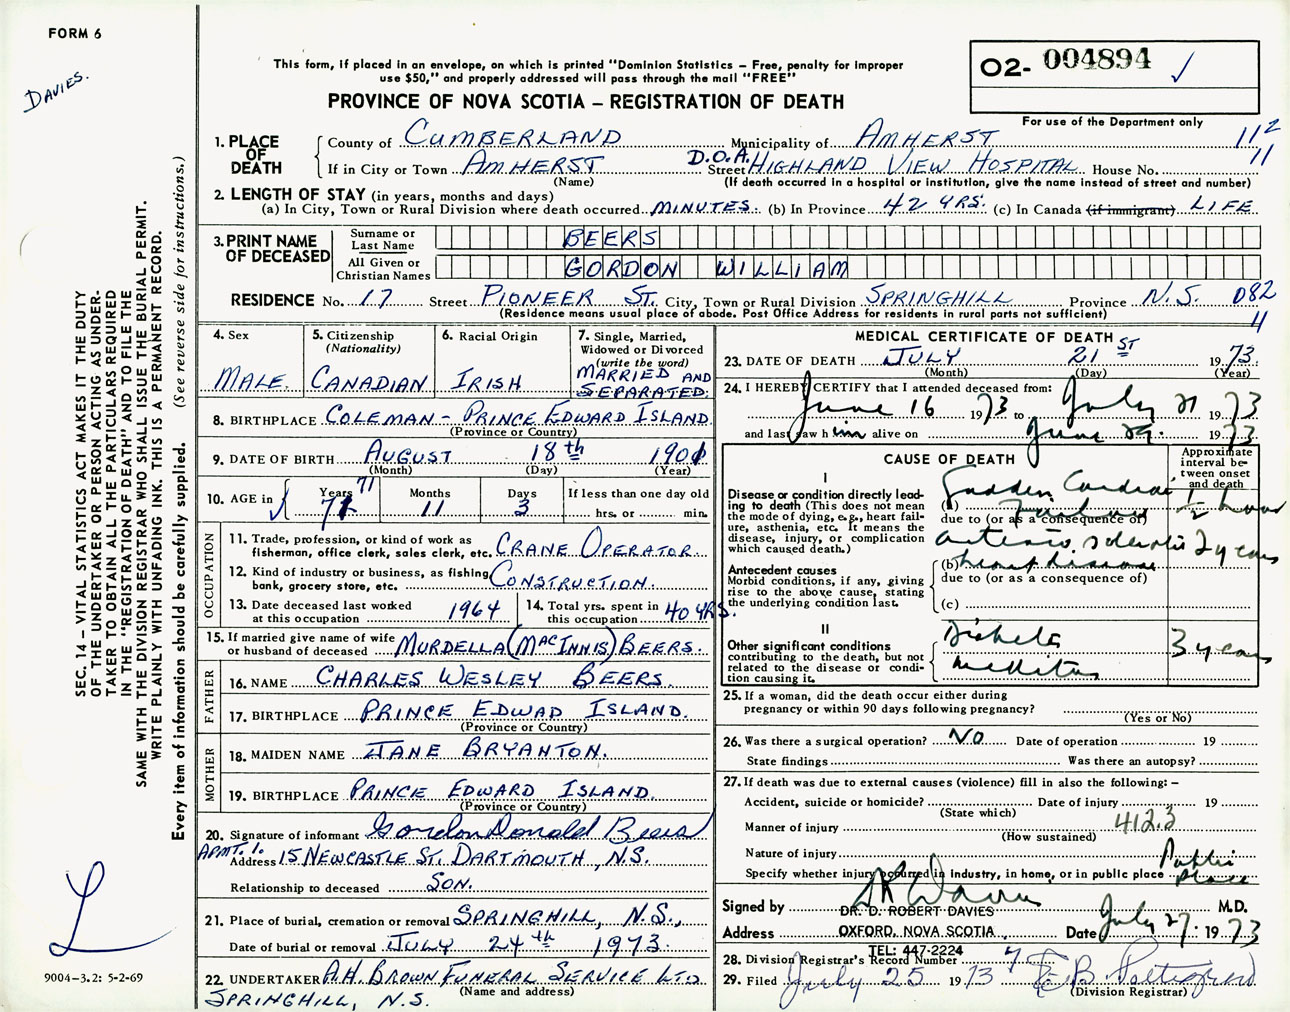 FORM 6
DAVIES.
This form, if placed in an envelope, on which is printed "Dominion Statistics – Free, penalty for improper
use $50," and properly addressed will pass through the mail "FREE"
PROVINCE OF NOVA SCOTIA – REGISTRATION OF DEATH
O2- 004894 ✓
For use of the Department only
1. PLACE OF DEATH
County of CUMBERLAND Municipality of AMHERST 11 2
If in City or Town AMHERST D.O.A. Street HIGHLAND VIEW HOSPITAL House No. 11
(Name) (If death occurred in a hospital or institution, give the name instead of street and number)
2. LENGTH OF STAY (in years, months and days)
(a) In City, Town or Rural Division where death occurred MINUTES. (b) In Province 42 YRS. (c) In Canada (if immigrant) LIFE
3. PRINT NAME OF DECEASED
Surname or Last Name BEERS
All Given or Christian Names GORDON WILLIAM
RESIDENCE No. 17 Street PIONEER ST. City, Town or Rural Division SPRINGHILL Province N.S. 082
(Residence means usual place of abode. Post Office Address for residents in rural parts not sufficient) 4
4. Sex
MALE.
5. Citizenship
(Nationality)
CANADIAN
6. Racial Origin
IRISH
7. Single, Married,
Widowed or Divorced
(write the word)
MARRIED AND
SEPARATED.
8. BIRTHPLACE COLEMAN – PRINCE EDWARD ISLAND.
(Province or Country)
9. DATE OF BIRTH AUGUST 18th 1901
(Month) (Day) (Year)
10. AGE in Years 71 Months 11 Days 3 If less than one day old
hrs. or min.
OCCUPATION
11. Trade, profession, or kind of work as
fisherman, office clerk, sales clerk, etc. CRANE OPERATOR.
12. Kind of industry or business, as fishing
bank, grocery store, etc. CONSTRUCTION.
13. Date deceased last worked
at this occupation 1964
14. Total yrs. spent in
this occupation 40 YRS.
15. If married give name of wife
or husband of deceased MURDELLA (MACINNIS) BEERS.
FATHER
16. NAME CHARLES WESLEY BEERS.
17. BIRTHPLACE PRINCE EDWAD ISLAND.
(Province or Country)
MOTHER
18. MAIDEN NAME JANE BRYANTON.
19. BIRTHPLACE PRINCE EDWARD ISLAND.
(Province or Country)
20. Signature of informant Gordon Donald Beers
APMT. 1.
Address 15 NEWCASTLE ST. DARTMOUTH, N.S.
Relationship to deceased SON.
21. Place of burial, cremation or removal SPRINGHILL, N.S.,
Date of burial or removal JULY 24th 1973
22. UNDERTAKER A.H. BROWN FUNERAL SERVICE LTD
(Name and address)
SPRINGHILL, N.S.
MEDICAL CERTIFICATE OF DEATH
23. DATE OF DEATH JULY 21ST 1973.
(Month) (Day) (Year)
24. I HEREBY CERTIFY that I attended deceased from:
June 16 1973 to July 21 1973
and last saw him alive on June 29. 1973
CAUSE OF DEATH
Approximate
interval be-
tween onset
and death
I
Disease or condition directly lead-
ing to death (This does not mean
the mode of dying, e.g., heart fail-
ure, asthenia, etc. It means the
disease, injury, or complication
which caused death.)
(a) Sudden Cardiac Failure 1/2 hour
due to (or as a consequence of)
Antecedent causes
Morbid conditions, if any, giving
rise to the above cause, stating
the underlying condition last.
arterio sclerotic 2 years
(b) heart disease
due to (or as a consequence of)
(c)
II
Other significant conditions
contributing to the death, but not
related to the disease or condi-
tion causing it.
Diabetes 3 years
mellitus
25. If a woman, did the death occur either during
pregnancy or within 90 days following pregnancy?
(Yes or No)
26. Was there a surgical operation? NO Date of operation 19
State findings Was there an autopsy?
27. If death was due to external causes (violence) fill in also the following: –
Accident, suicide or homicide? Date of injury 19
(State which)
Manner of injury 412.3
(How sustained)
Nature of injury
Specify whether injury occurred in industry, in home, or in public place Public place
Signed by D R Davies M.D.
DR. D. ROBERT DAVIES
Address OXFORD, NOVA SCOTIA Date July 27. 1973
TEL: 447-2224
28. Division Registrar's Record Number 7
29. Filed July 25 1973
(Division Registrar)
SEC. 14 – VITAL STATISTICS ACT MAKES IT THE DUTY
OF THE UNDERTAKER OR PERSON ACTING AS UNDER-
TAKER TO OBTAIN ALL THE PARTICULARS REQUIRED
IN THE "REGISTRATION OF DEATH" AND TO FILE THE
SAME WITH THE DIVISION REGISTRAR WHO SHALL ISSUE THE BURIAL PERMIT.
WRITE PLAINLY WITH UNFADING INK. THIS IS A PERMANENT RECORD.
Every item of information should be carefully supplied. (See reverse side for instructions.)
L
9004–3.2: 5-2-69